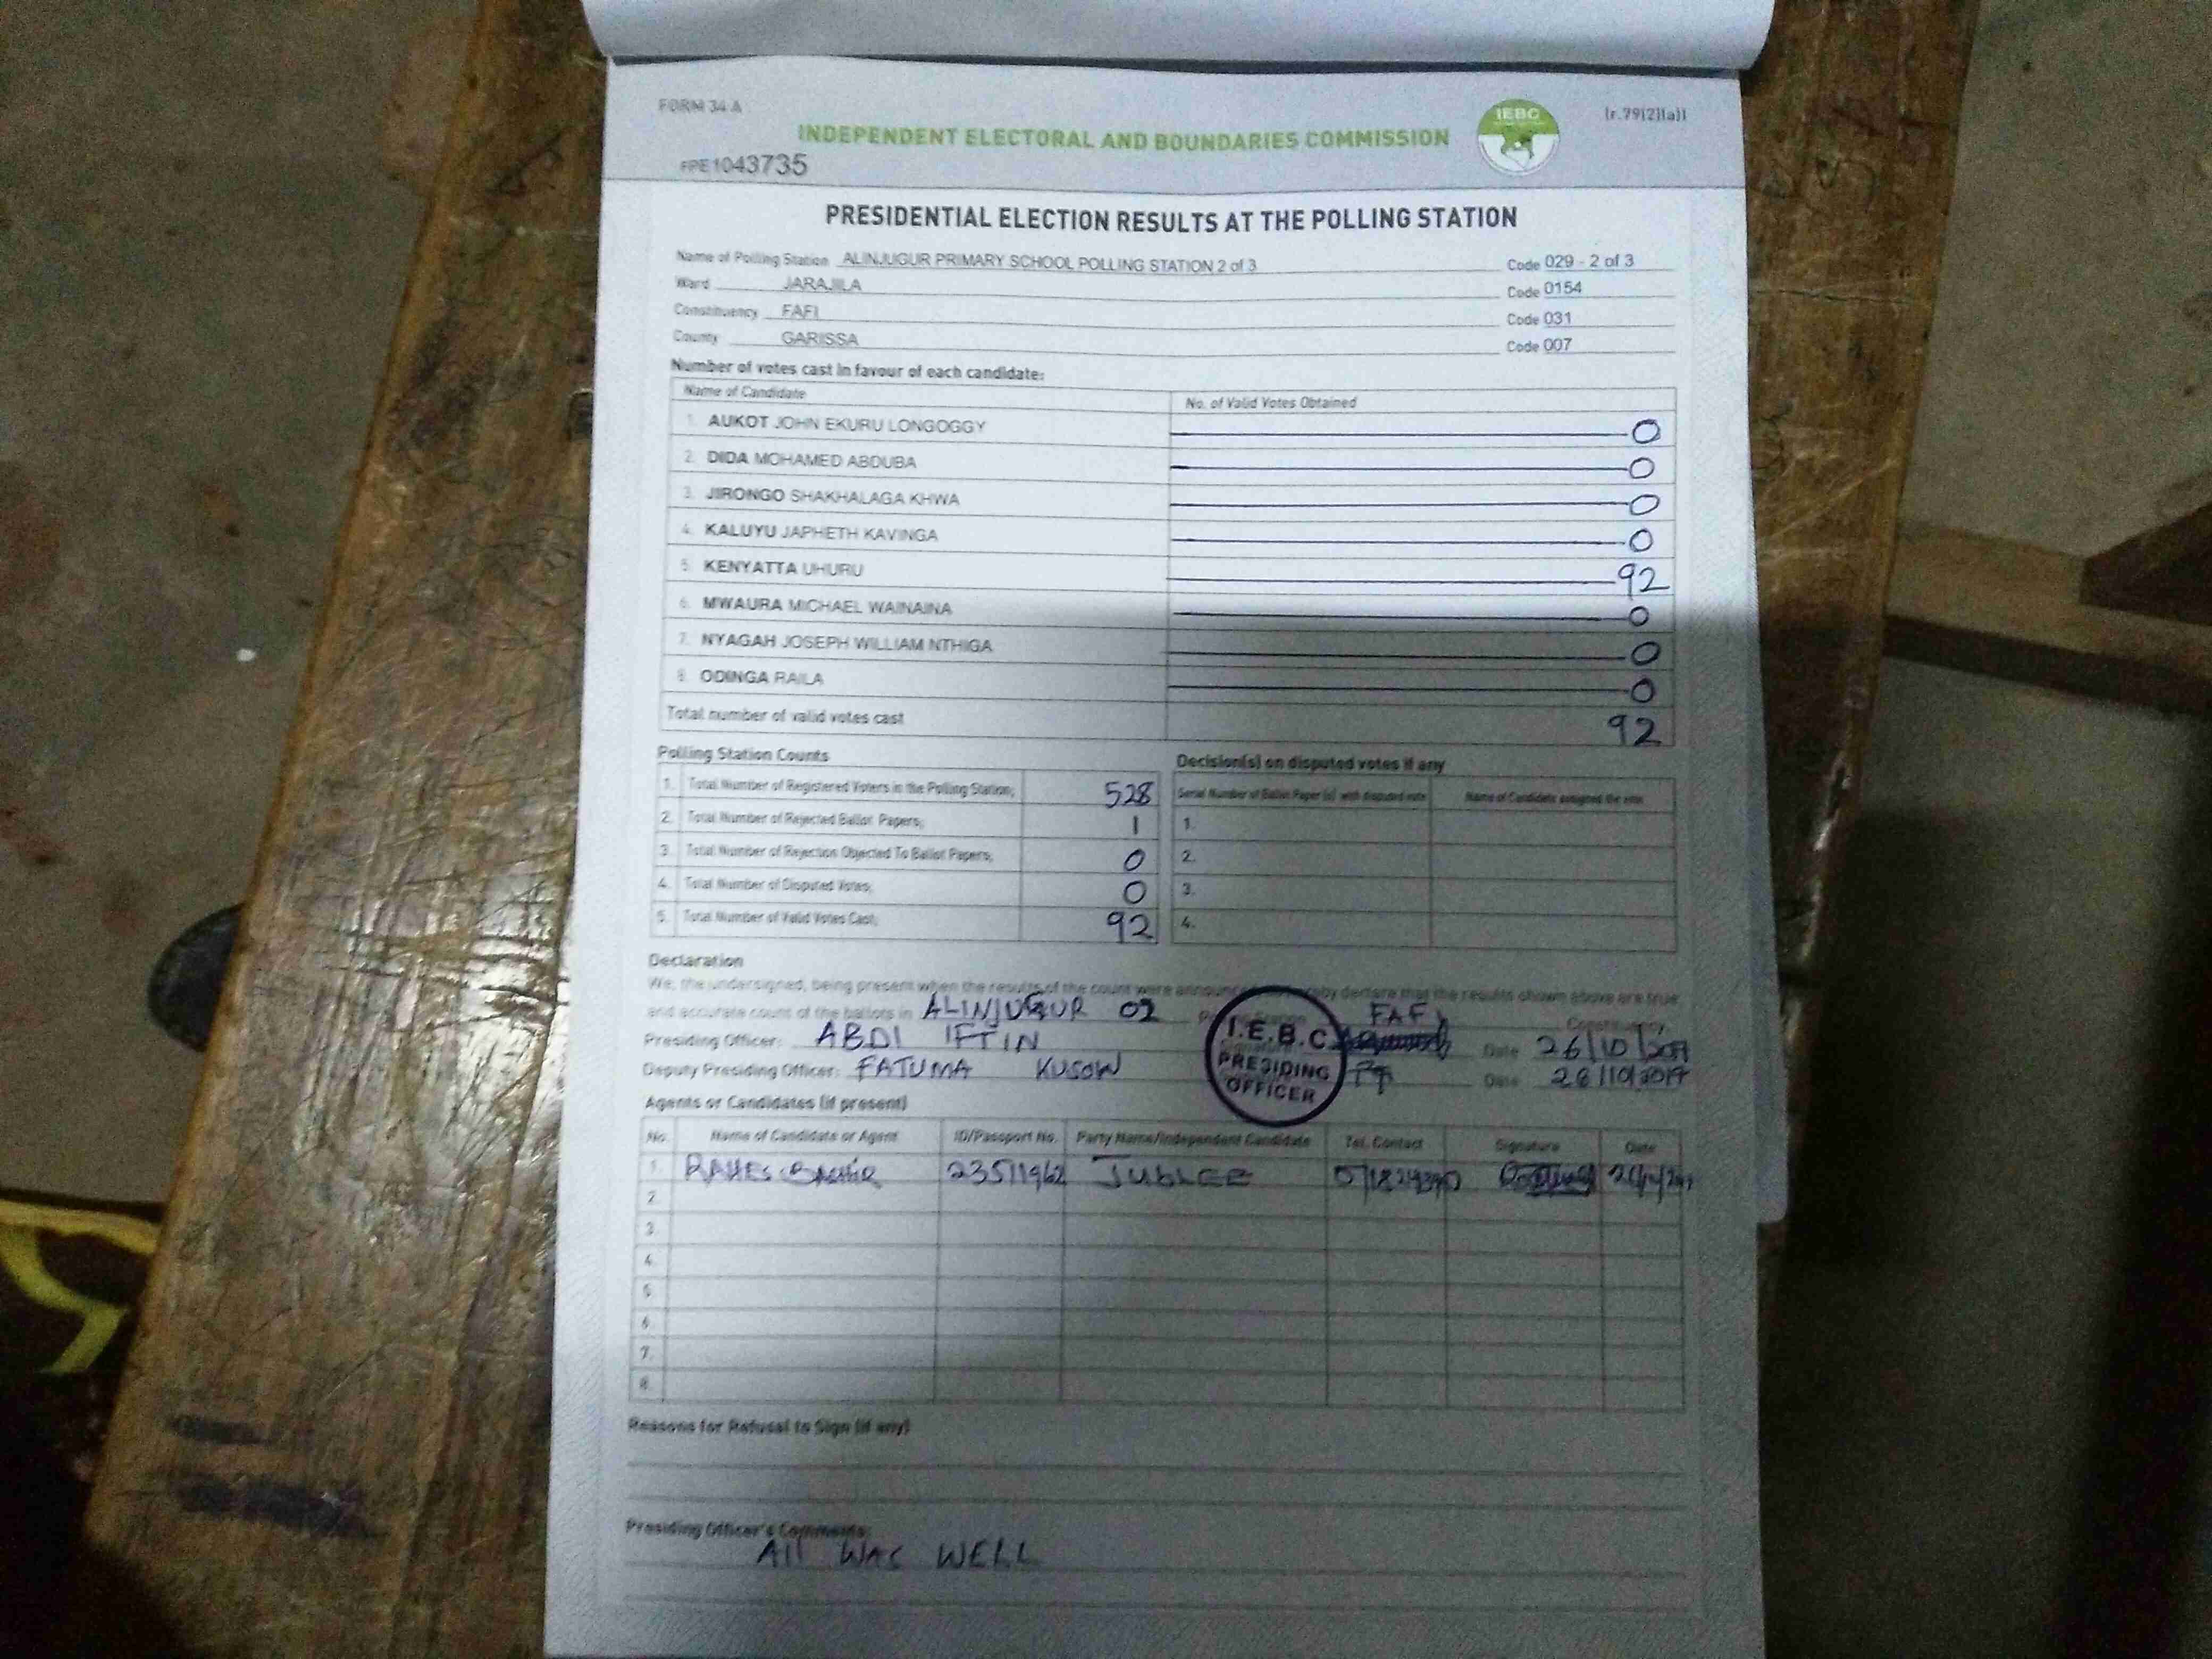 FORM 34 A
IEBC
(r.79(2)(a))
INDEPENDENT ELECTORAL AND BOUNDARIES COMMISSION
FPE1043735
PRESIDENTIAL ELECTION RESULTS AT THE POLLING STATION
Name of Polling Station ALINJUGUR PRIMARY SCHOOL POLLING STATION 2 of 3 Code 029 - 2 of 3
Ward JARAJILA Code 0154
Constituency FAFI Code 031
County GARISSA Code 007
Number of votes cast in favour of each candidate:
Name of Candidate No. of Valid Votes Obtained
1. AUKOT JOHN EKURU LONGOGGY 0
2. DIDA MOHAMED ABDUBA 0
3. JIRONGO SHAKHALAGA KHWA 0
4. KALUYU JAPHETH KAVINGA 0
5. KENYATTA UHURU 92
6. MWAURA MICHAEL WAINAINA 0
7. NYAGAH JOSEPH WILLIAM NTHIGA 0
8. ODINGA RAILA 0
Total number of valid votes cast 92
Polling Station Counts
1. Total Number of Registered Voters in the Polling Station; 528
2. Total Number of Rejected Ballot Papers; 1
3. Total Number of Rejection Objected To Ballot Papers; 0
4. Total Number of Disputed Votes; 0
5. Total Number of Valid Votes Cast; 92
Decision(s) on disputed votes if any
Serial Number of Ballot Paper (s) with disputed vote Name of Candidate assigned the vote
1.
2.
3.
4.
Declaration
We, the undersigned, being present when the results of the count were announced hereby declare that the results shown above are true
and accurate count of the ballots in ALINJUGUR 02 Polling Station FAFI Constituency
Presiding Officer: ABDI IFTIN Date 26/10/2017
Deputy Presiding Officer: FATUMA KUSOW Date 26/10/2017
I.E.B.C
PRESIDING
OFFICER
Agents or Candidates (if present)
No. Name of Candidate or Agent ID/Passport No. Party Name/Independent Candidate Tel. Contact Signature Date
1. 23511962 JUBLEE
2.
3.
4.
5.
6.
7.
8.
Reasons for Refusal to Sign (if any)
Presiding Officer's Comments:
All WAS WELL